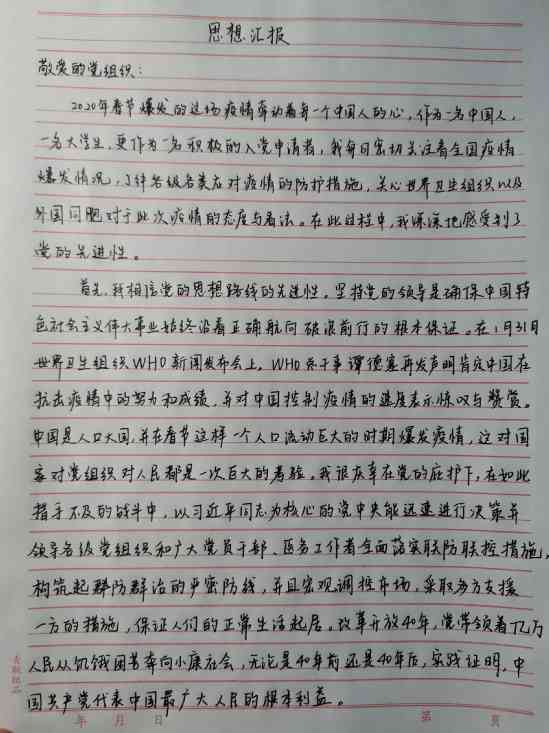 思想汇报
敬爱的党组织：
2020年春节爆发的这场疫情牵动着每一个中国人的心，作为一名中国人，
一名大学生，更作为一名积极的入党申请者，我每日密切关注着全国疫情
爆发情况，了解各级各类应对疫情的防护措施，关心世界卫生组织以及
外国同胞对于此次疫情的态度与看法。在此过程中，我深深地感受到了
党的先进性。
首先，我相信党的思想路线的先进性。坚持党的领导是确保中国特
色社会主义伟大事业始终沿着正确航向破浪前行的根本保证。在1月31日
世界卫生组织WHO新闻发布会上，WHO总干事谭德塞再发声明肯定中国在
抗击疫情中的努力和成绩，并对中国控制疫情的速度表示惊叹与赞赏。
中国是人口大国，并在春节这样一个人口流动巨大的时期爆发疫情，这对国
家对党组织对人民都是一次巨大的考验。我很庆幸在党的庇护下，在如此
措手不及的战斗中，以习近平同志为核心的党中央能迅速进行决策并
领导各级党组织和广大党员干部、医务工作者全面落实联防联控措施，
构筑起群防群治的严密防线，并且宏观调控市场，采取多方支援
一方的措施，保证人们的正常生活起居。改革开放40年，党带领着亿万
人民从饥饿困苦奔向小康社会，无论是40年前还是40年后，实践证明，中
国共产党代表中国最广大人民的根本利益。
年 月 日
第 页